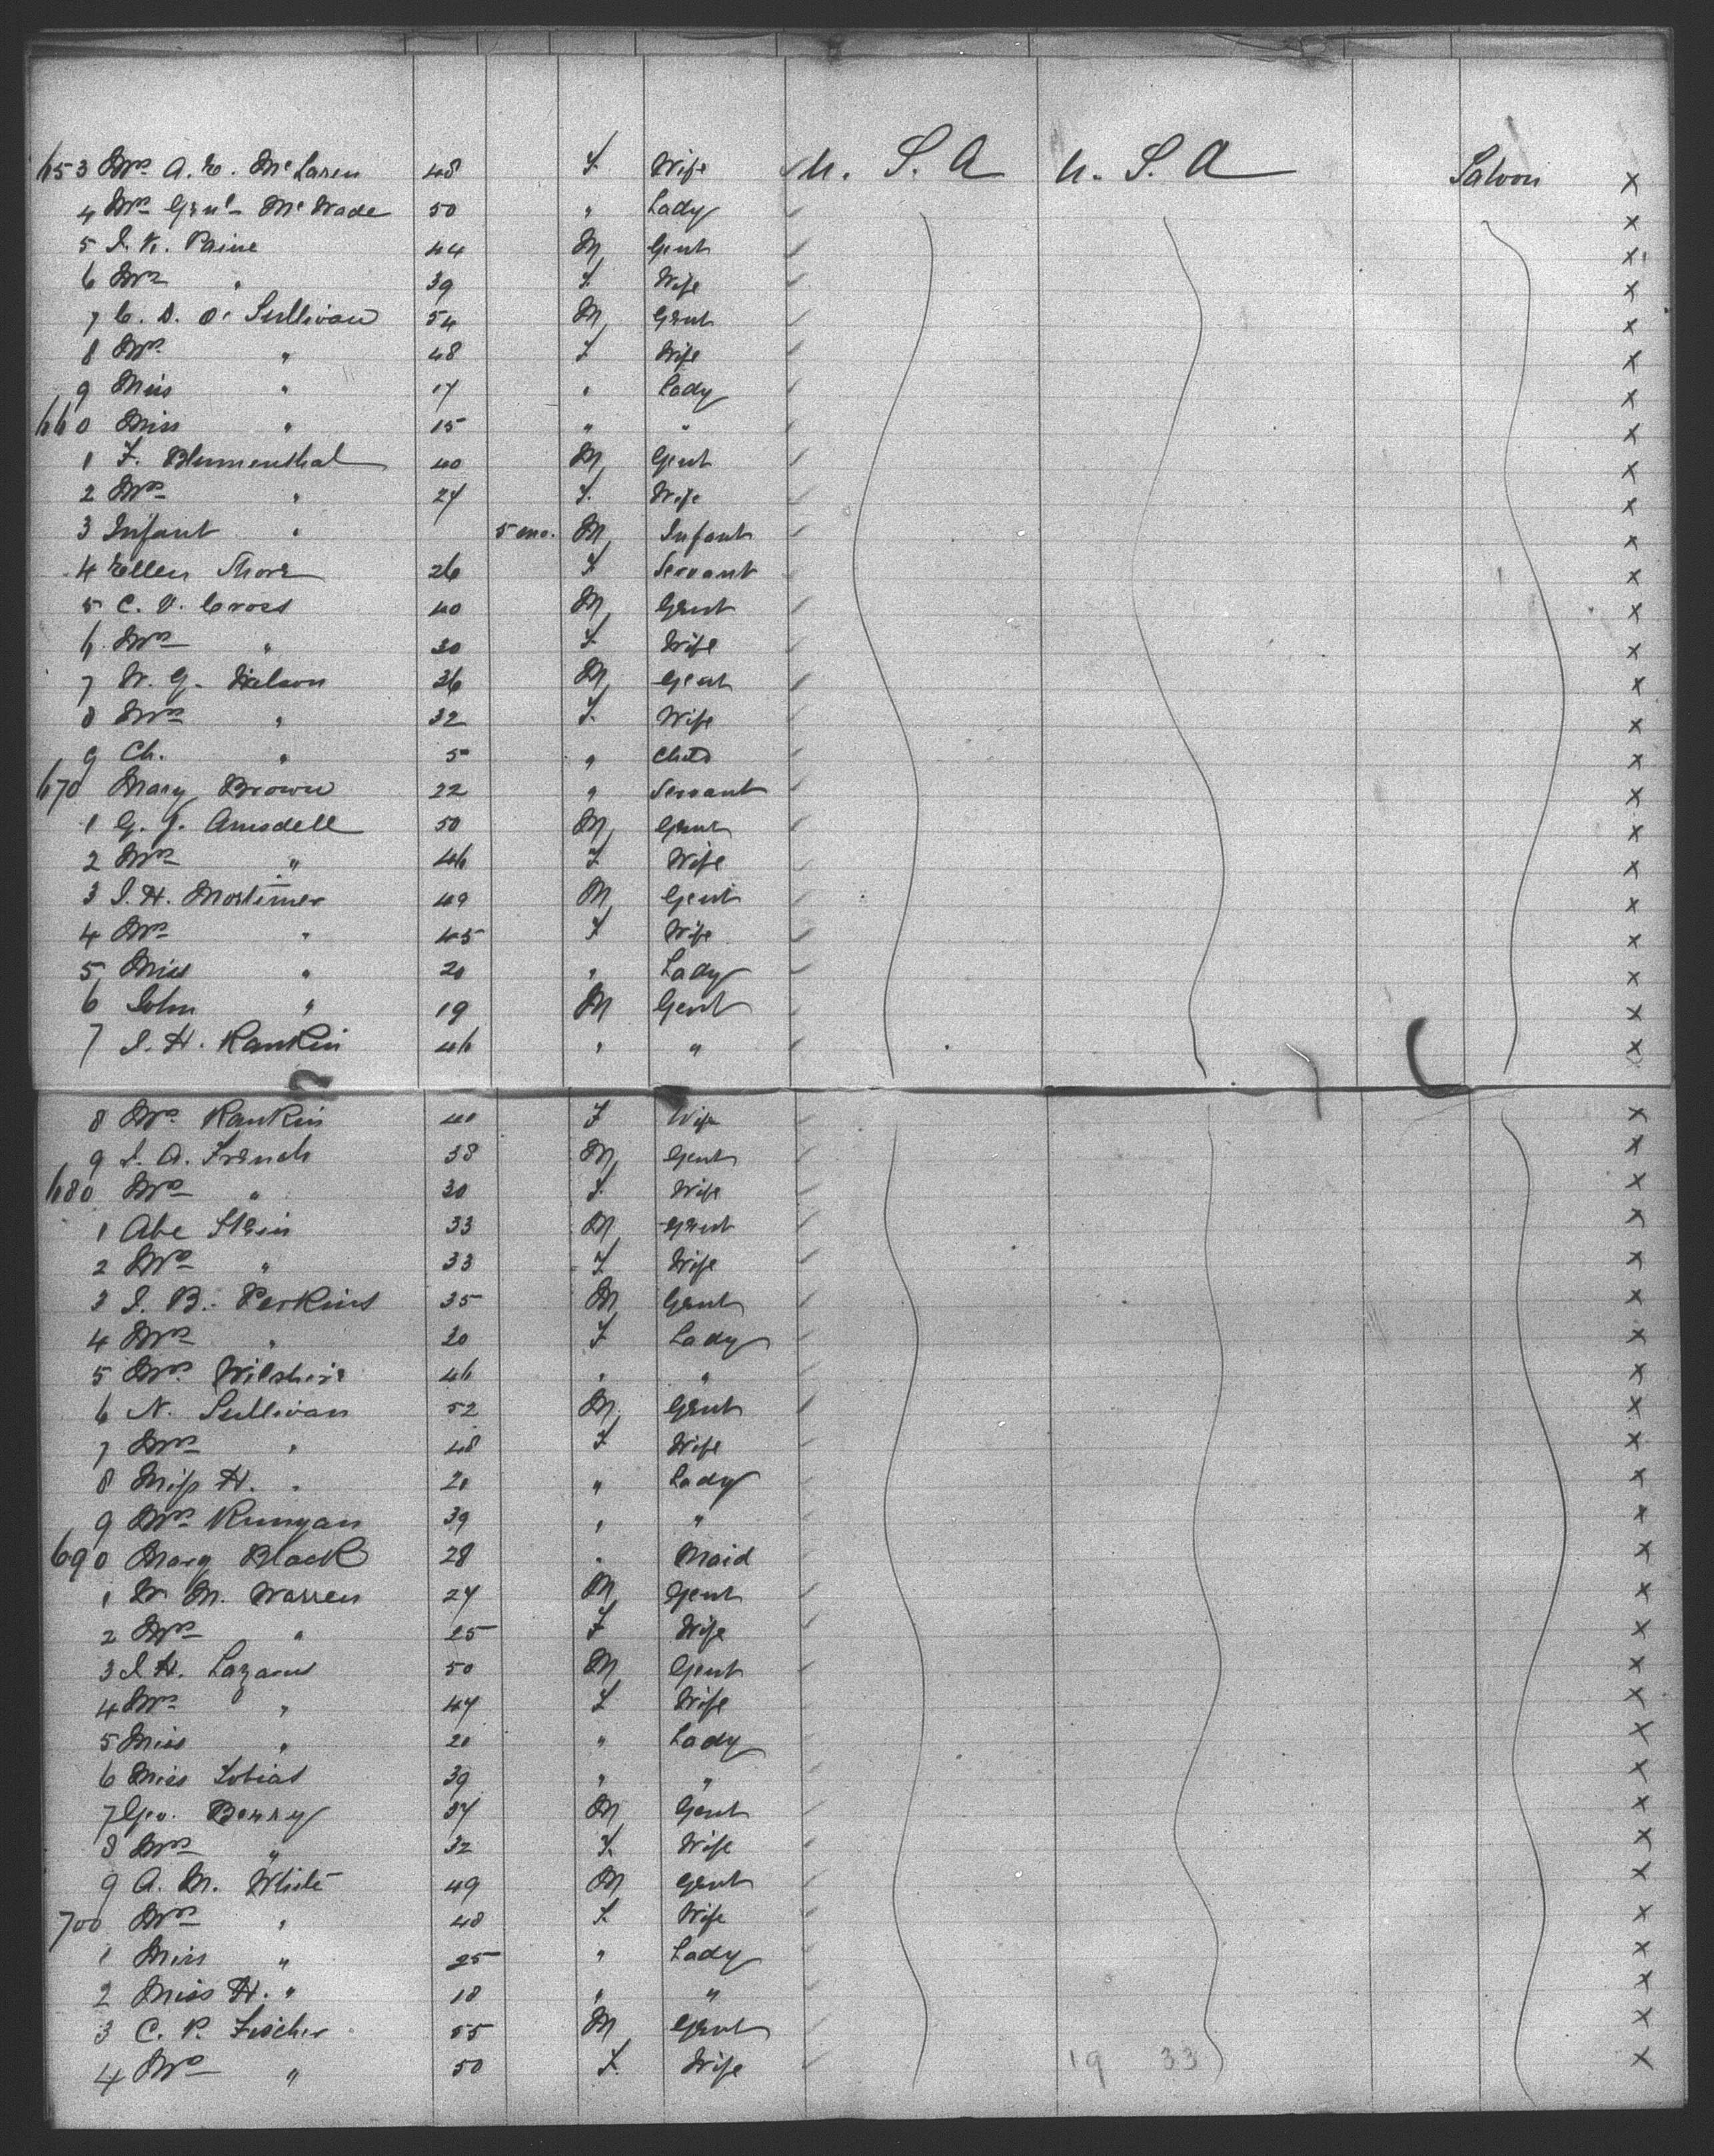 653 Mrs A. E. McLaren 48 F. Wife U. S. A U. S. A Saloon X
4 Mrs Genl McWade 50 " Lady X
5 J. K. Paine 44 M Gent X
6 Mrs " 39 F. Wife X
7 C. D. O'Sullivan 54 M Gent X
8 Mrs " 48 F Wife X
9 Miss " 17 " Lady X
660 Miss " 15 " " X
1 F. Blumenthal 40 M Gent X
2 Mrs " 27 F. Wife X
3 Infant " 5 mo. M Infant X
4 Ellen Shore 26 F Servant X
5 C. V. Cross 40 M Gent X
6 Mrs " 30 F Wife X
7 W. G. Wilson 36 M Gent X
8 Mrs " 32 F. Wife X
9 Ch. " 5 " Child X
670 Mary Brown 22 " Servant X
1 G. J. Amsdell 50 M Gent X
2 Mrs " 46 F Wife X
3 J. H. Mortimer 49 M Gent X
4 Mrs " 45 F Wife X
5 Miss " 20 " Lady X
6 John " 19 M Gent X
7 J. H. Rankin 46 " " X
8 Mrs Rankin 40 F Wife X
9 J. A. French 38 M Gent X
680 Mrs " 30 F. Wife X
1 Abe Stein 33 M Gent X
2 Mrs " 33 F Wife X
3 J. B. Perkins 35 M Gent X
4 Mrs " 30 F Lady X
5 Mrs. Wilshire 46 " " X
6 N. Sullivan 52 M Gent X
7 Mrs " 48 F Wife X
8 Miss H. " 20 " Lady X
9 Mrs Runyan 39 " " X
690 Mary Black 28 " Maid X
1 W M. Warren 27 M Gent X
2 Mrs " 25 F Wife X
3 J. H. Lazarus 50 M Gent X
4 Mrs " 47 F Wife X
5 Miss " 20 " Lady X
6 Miss Tobias 39 " " X
7 Geo. Berry 37 M Gent X
8 Mrs " 32 F. Wife X
9 A. M. White 49 M Gent X
700 Mrs " 48 F. Wife X
1 Miss " 25 " Lady X
2 Miss H. " 18 " " X
3 C. P. Fischer 55 M Gent X
4 Mrs " 50 F. Wife 19 33 X